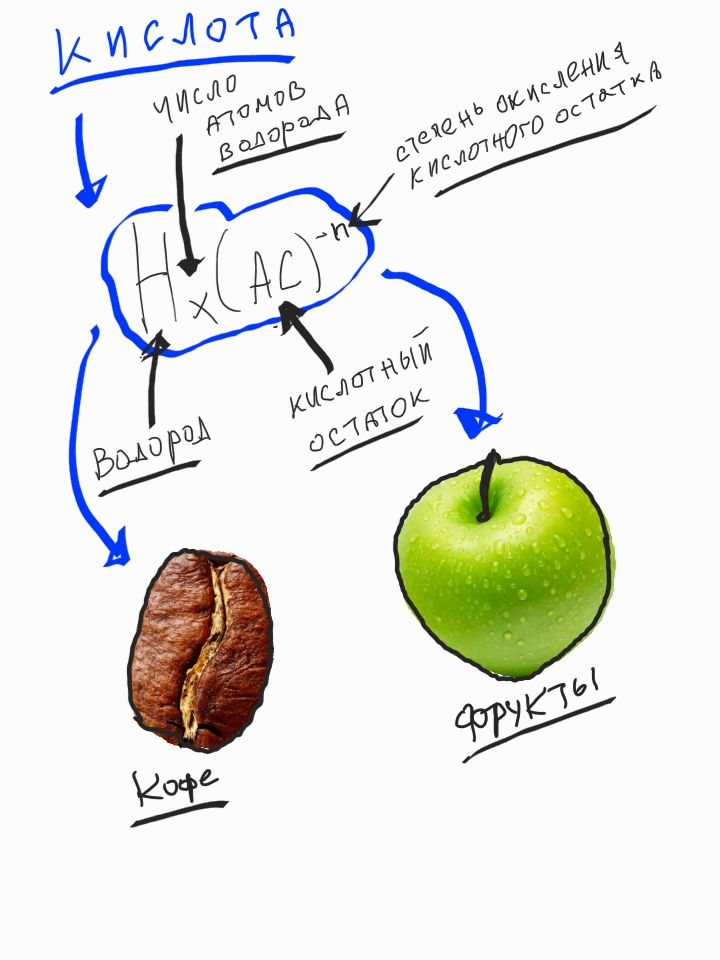 КИСЛОТА
ЧИСЛО
АТОМОВ
ВОДОРОДА
СТЕПЕНЬ ОКИСЛЕНИЯ
КИСЛОТНОГО ОСТАТКА
Hₓ(AC)⁻ⁿ
КИСЛОТНЫЙ
ОСТАТОК
ВОДОРОД
ФРУКТЫ
КОФЕ